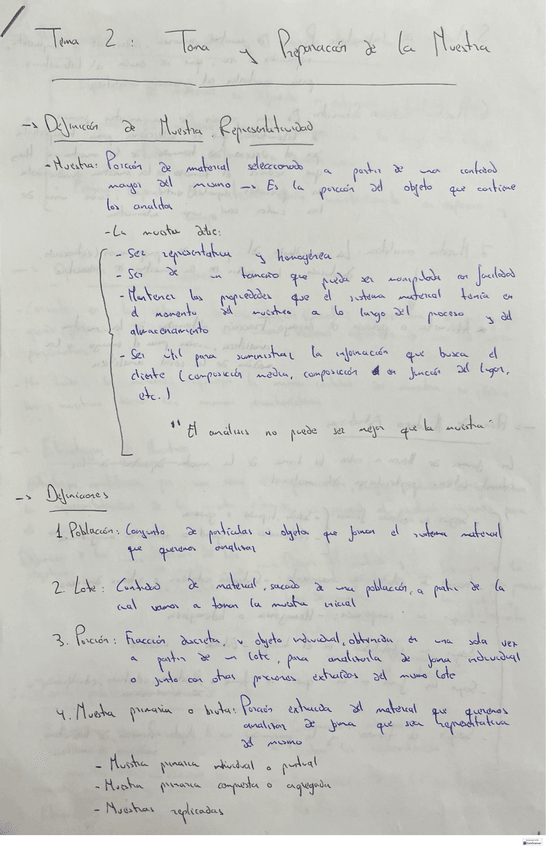 Tema 2: Toma y Preparación de la Muestra
-> Definición de Muestra. Representatividad
- Muestra: Porción de material seleccionado a partir de una cantidad
mayor del mismo -> Es la porción del objeto que contiene
los analitos
- La muestra debe:
- Ser representativa y homogénea
- Ser de un tamaño que pueda ser manipulada con facilidad
- Mantener las propiedades que el sistema material tenía en
el momento del muestreo a lo largo del proceso y del
almacenamiento
- Ser útil para suministrar la información que busca el
cliente (composición media, composición en función del lugar,
etc.)
"El análisis no puede ser mejor que la muestra"
-> Definiciones
1. Población: Conjunto de partículas u objetos que forman el sistema material
que queremos analizar
2. Lote: Cantidad de material, sacado de una población, a partir de la
cual vamos a tomar la muestra inicial
3. Porción: Fracción discreta, u objeto individual, obtenida en una sola vez
a partir de un lote, para analizarla de forma individual
o junto con otras porciones extraídas del mismo lote
4. Muestra primaria o bruta: Porción extraída del material que queremos
analizar de forma que sea representativa
del mismo
- Muestra primaria individual o puntual
- Muestra primaria compuesta o agregada
- Muestras replicadas